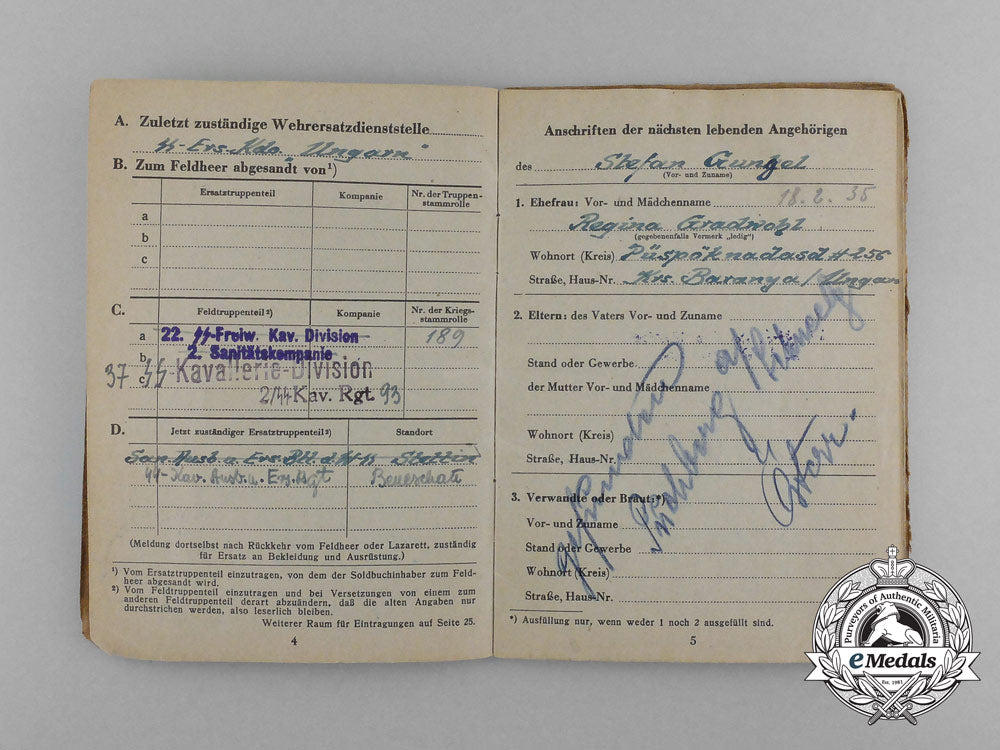 A. Zuletzt zuständige Wehrersatzdienststelle
SS-Ers. Kdo. "Ungarn"
B. Zum Feldheer abgesandt von¹)
Ersatztruppenteil Kompanie Nr. der Truppen-
stammrolle
a
b
c
C. Feldtruppenteil²) Kompanie Nr. der Kriegs-
stammrolle
a 22. SS-Freiw. Kav. Division 189
b 2. Sanitätskompanie
c 37 SS Kavallerie-Division
2/SS Kav. Rgt. 93
D. Jetzt zuständiger Ersatztruppenteil²) Standort
San. Ausb. u. Ers. Btl. d. W-SS Stettin
SS-Kav. Ausb. u. Ers. Rgt Beneschau
(Meldung dortselbst nach Rückkehr vom Feldheer oder Lazarett, zuständig
für Ersatz an Bekleidung und Ausrüstung.)
¹) Vom Ersatztruppenteil einzutragen, von dem der Soldbuchinhaber zum Feld-
heer abgesandt wird.
²) Vom Feldtruppenteil einzutragen und bei Versetzungen von einem zum
anderen Feldtruppenteil derart abzuändern, daß die alten Angaben nur
durchstrichen werden, also leserlich bleiben.
Weiterer Raum für Eintragungen auf Seite 25.
4
Anschriften der nächsten lebenden Angehörigen
des Stefan Gungel
(Vor- und Zuname)
1. Ehefrau: Vor- und Mädchenname 18.2.35
Regina Gradwohl
(gegebenenfalls Vermerk „ledig")
Wohnort (Kreis) Püspöknadasd H 256
Straße, Haus-Nr. Krs. Baranya / Ungarn
2. Eltern: des Vaters Vor- und Zuname
Stand oder Gewerbe
der Mutter Vor- und Mädchenname
Wohnort (Kreis)
Straße, Haus-Nr.
3. Verwandte oder Braut:*)
Vor- und Zuname
Stand oder Gewerbe
Wohnort (Kreis)
Straße, Haus-Nr.
*) Ausfüllung nur, wenn weder 1 noch 2 ausgefüllt sind.
5
Purveyors of Authentic Militaria
eMedals
Est. 1981